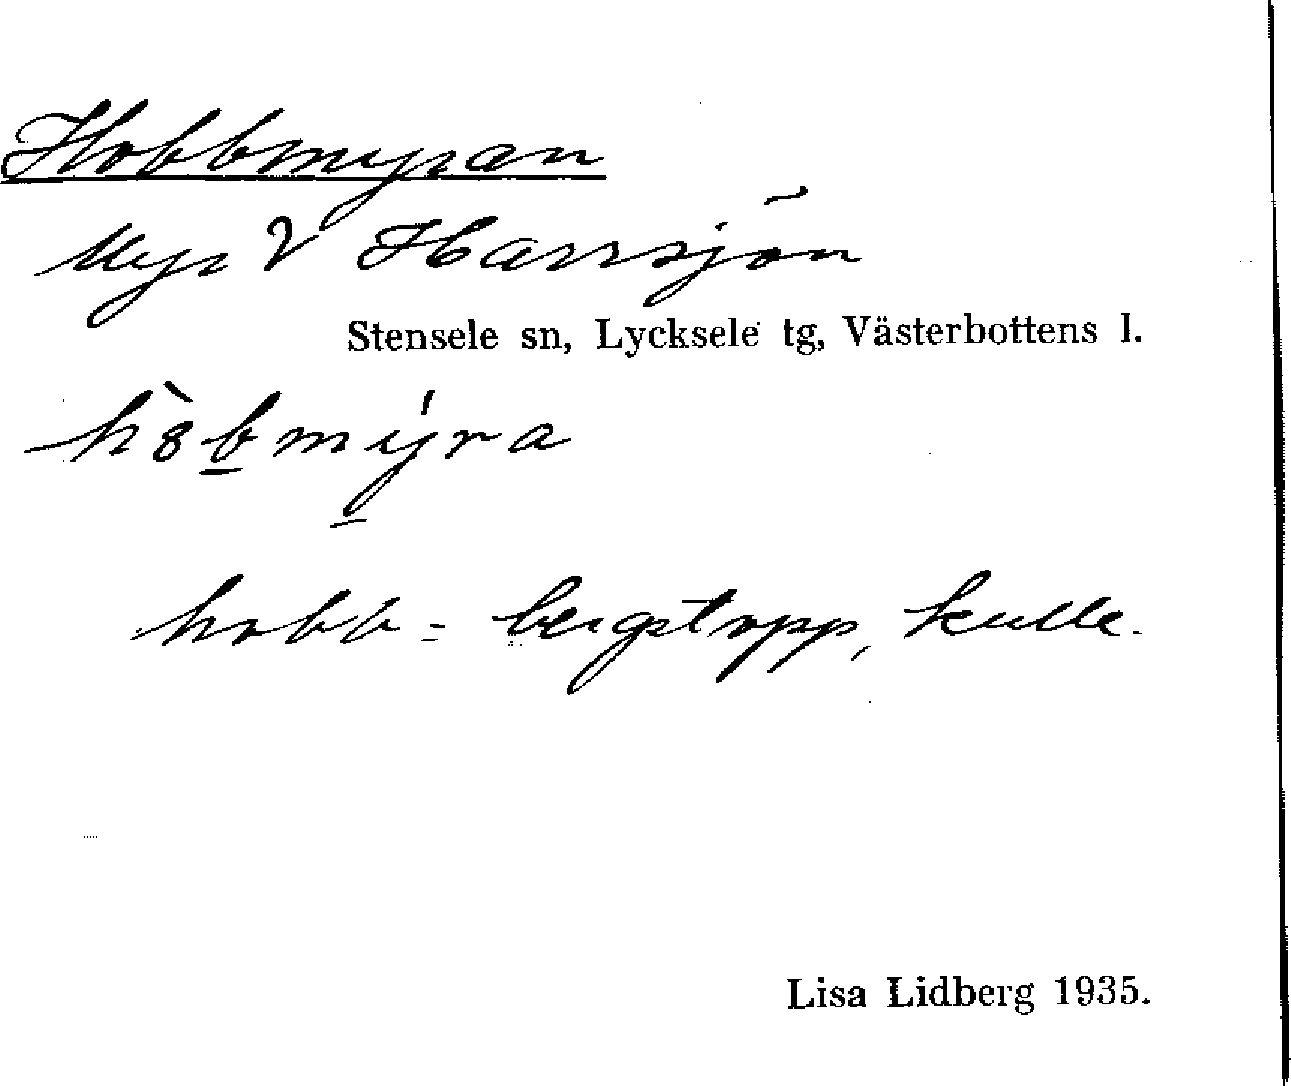 Hobbmyran
Myr V Harrsjön
Stensele sn, Lycksele tg, Västerbottens l.
hò̀bmýra
hobb = bergstopp, kulle.
Lisa Lidberg 1935.